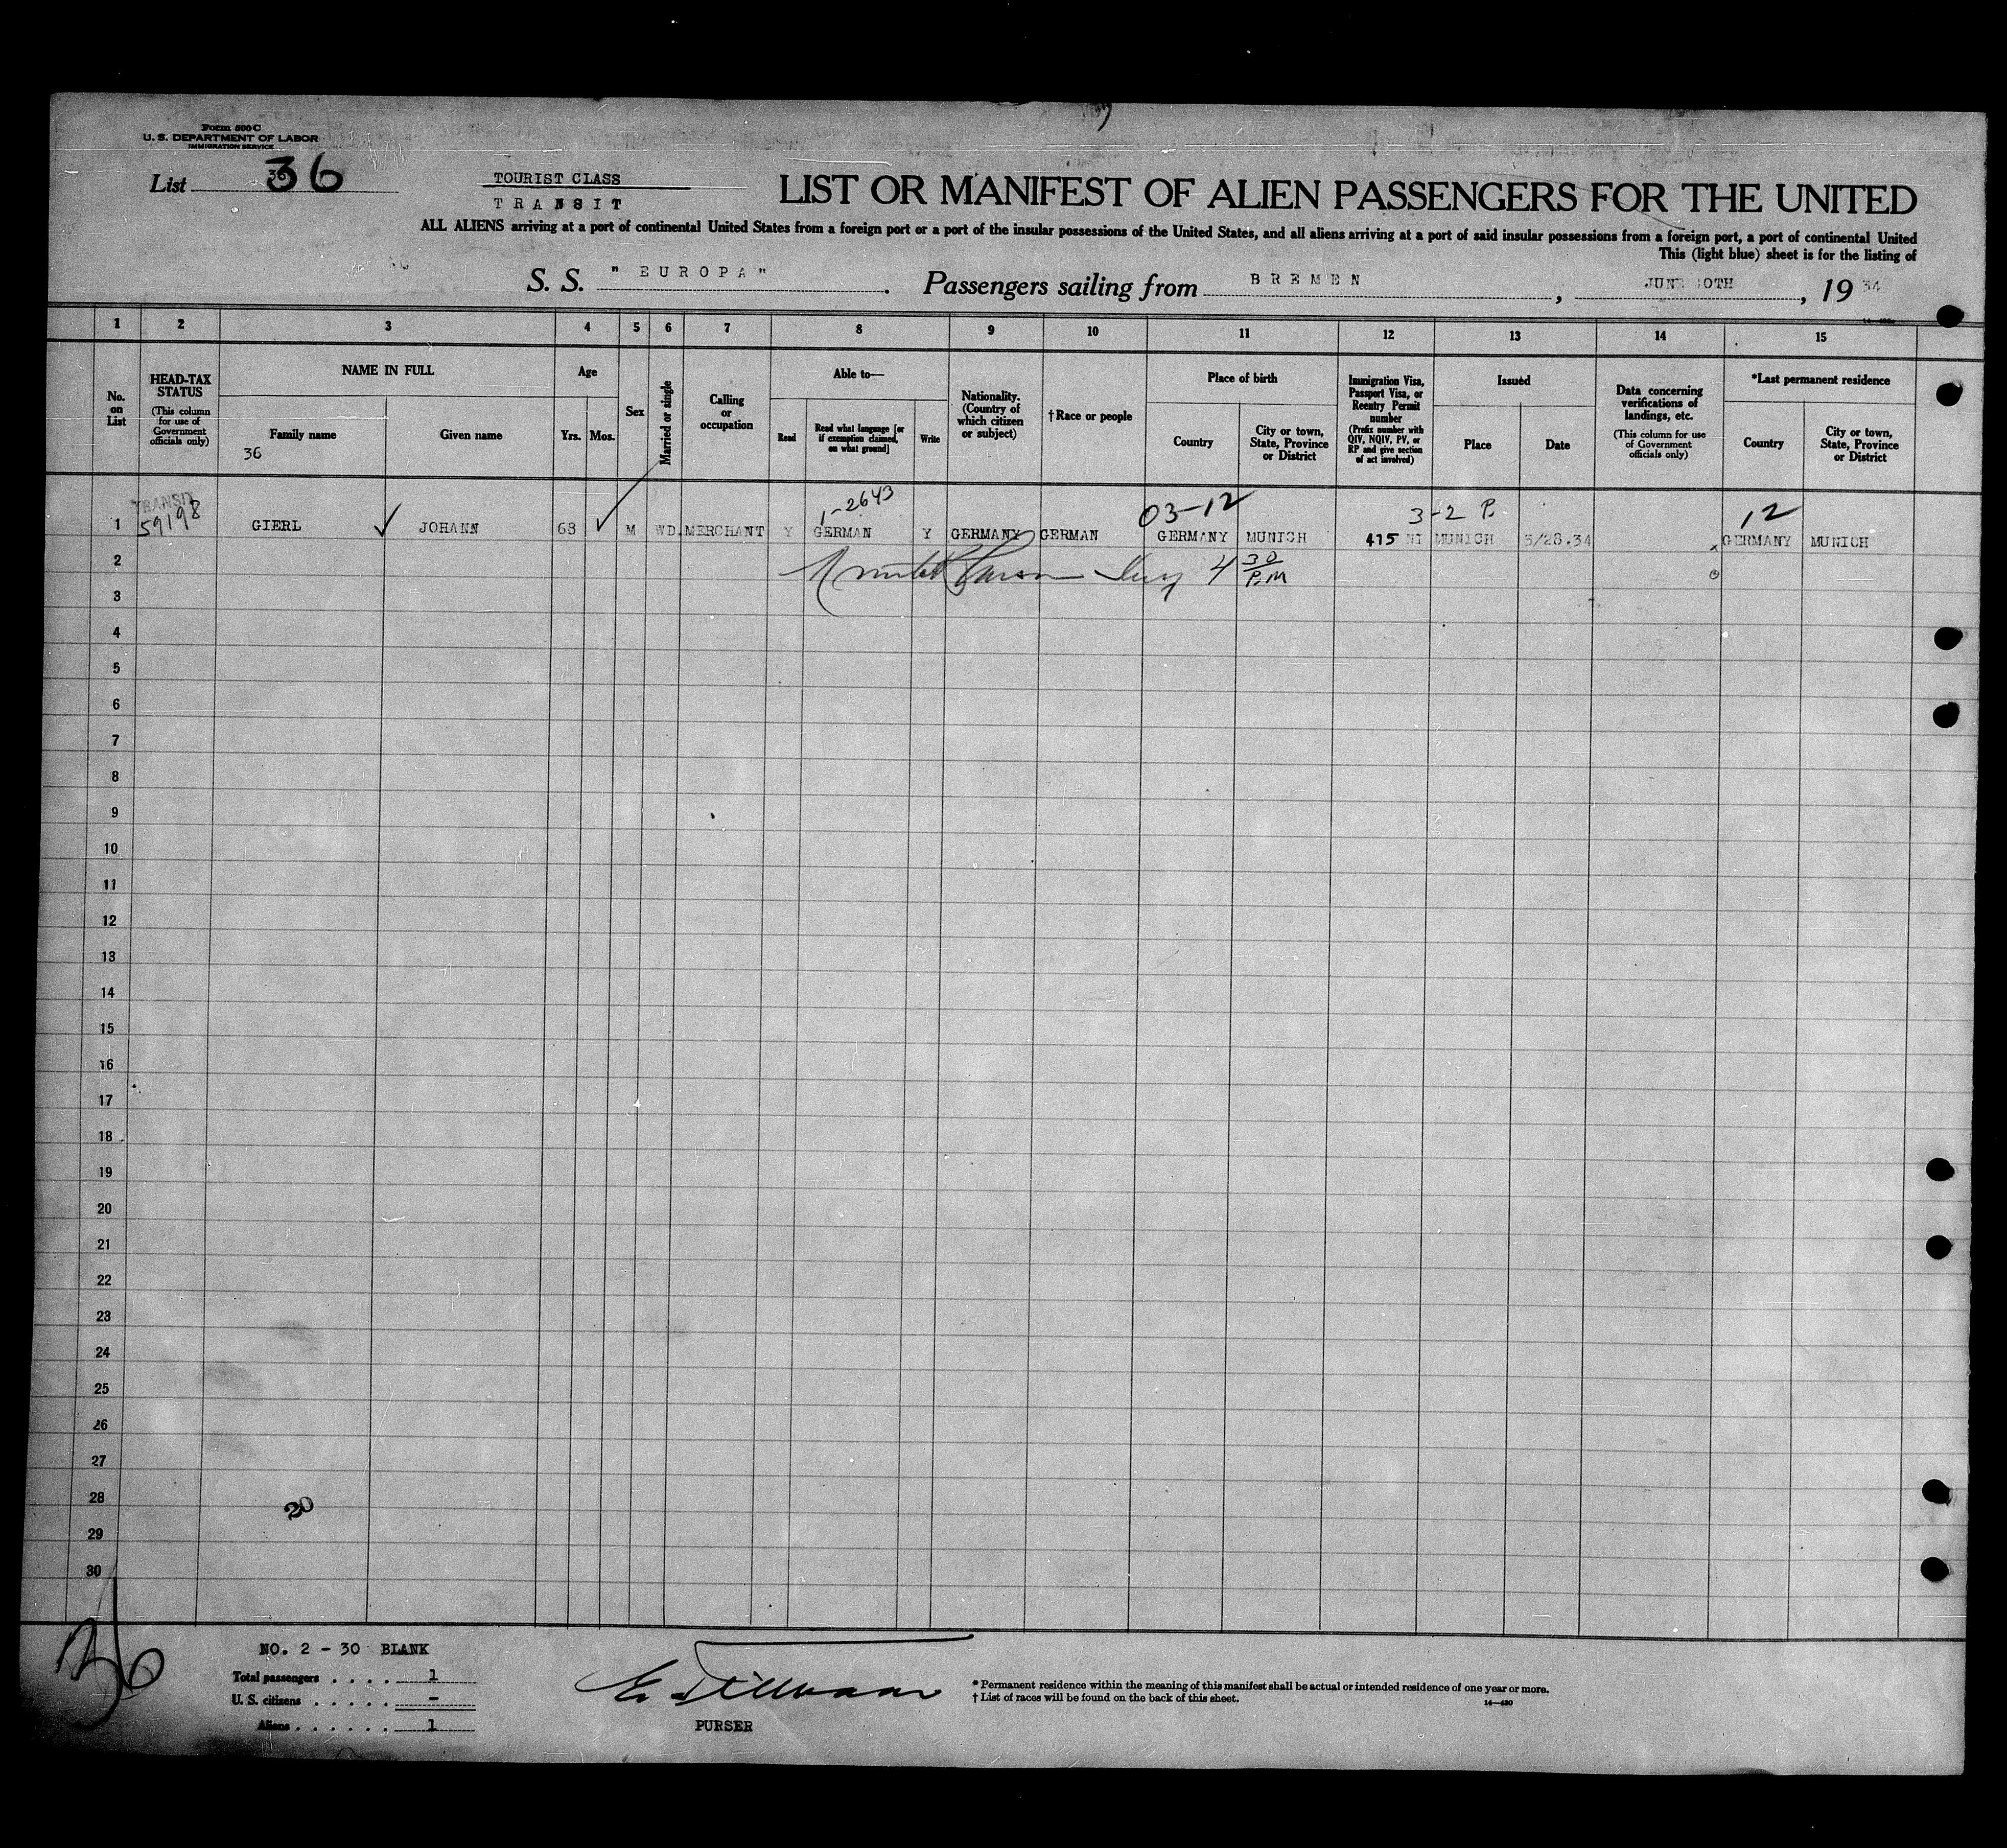 Form 500 C
U. S. DEPARTMENT OF LABOR
IMMIGRATION SERVICE
List 36
TOURIST CLASS
TRANSIT
LIST OR MANIFEST OF ALIEN PASSENGERS FOR THE UNITED
ALL ALIENS arriving at a port of continental United States from a foreign port or a port of the insular possessions of the United States, and all aliens arriving at a port of said insular possessions from a foreign port, a port of continental United
This (light blue) sheet is for the listing of
S. S. "EUROPA". Passengers sailing from BREMEN, JUNE 0TH, 19 34
1 2 3 4 5 6 7 8 9 10 11 12 13 14 15
No. on List
HEAD-TAX STATUS
(This column for use of Government officials only)
NAME IN FULL
Family name
36
Given name
Age
Yrs. Mos.
Sex
Married or single
Calling or occupation
Able to—
Read
Read what language [or if exemption claimed, on what ground]
Write
Nationality. (Country of which citizen or subject)
†Race or people
Place of birth
Country
City or town, State, Province or District
Immigration Visa, Passport Visa, or Reentry Permit number
(Prefix number with QIV, NQIV, PV, or RP and give section of act involved)
Issued
Place
Date
Data concerning verifications of landings, etc.
(This column for use of Government officials only)
*Last permanent residence
Country
City or town, State, Province or District
TRANSIT 1-2643 03-12 3-2 P. 12
1 59198 GIERL JOHANN 68 M WD. MERCHANT Y GERMAN Y GERMANY GERMAN GERMANY MUNICH 415 MUNICH 5/28.34 GERMANY MUNICH
2 4 30 P.M
3
4
5
6
7
8
9
10
11
12
13
14
15
16
17
18
19
20
21
22
23
24
25
26
27
28 20
29
30
36
NO. 2 - 30 BLANK
Total passengers . . . . 1
U. S. citizens . . . . . —
Aliens . . . . . . 1
PURSER
* Permanent residence within the meaning of this manifest shall be actual or intended residence of one year or more.
† List of races will be found on the back of this sheet.
14—480